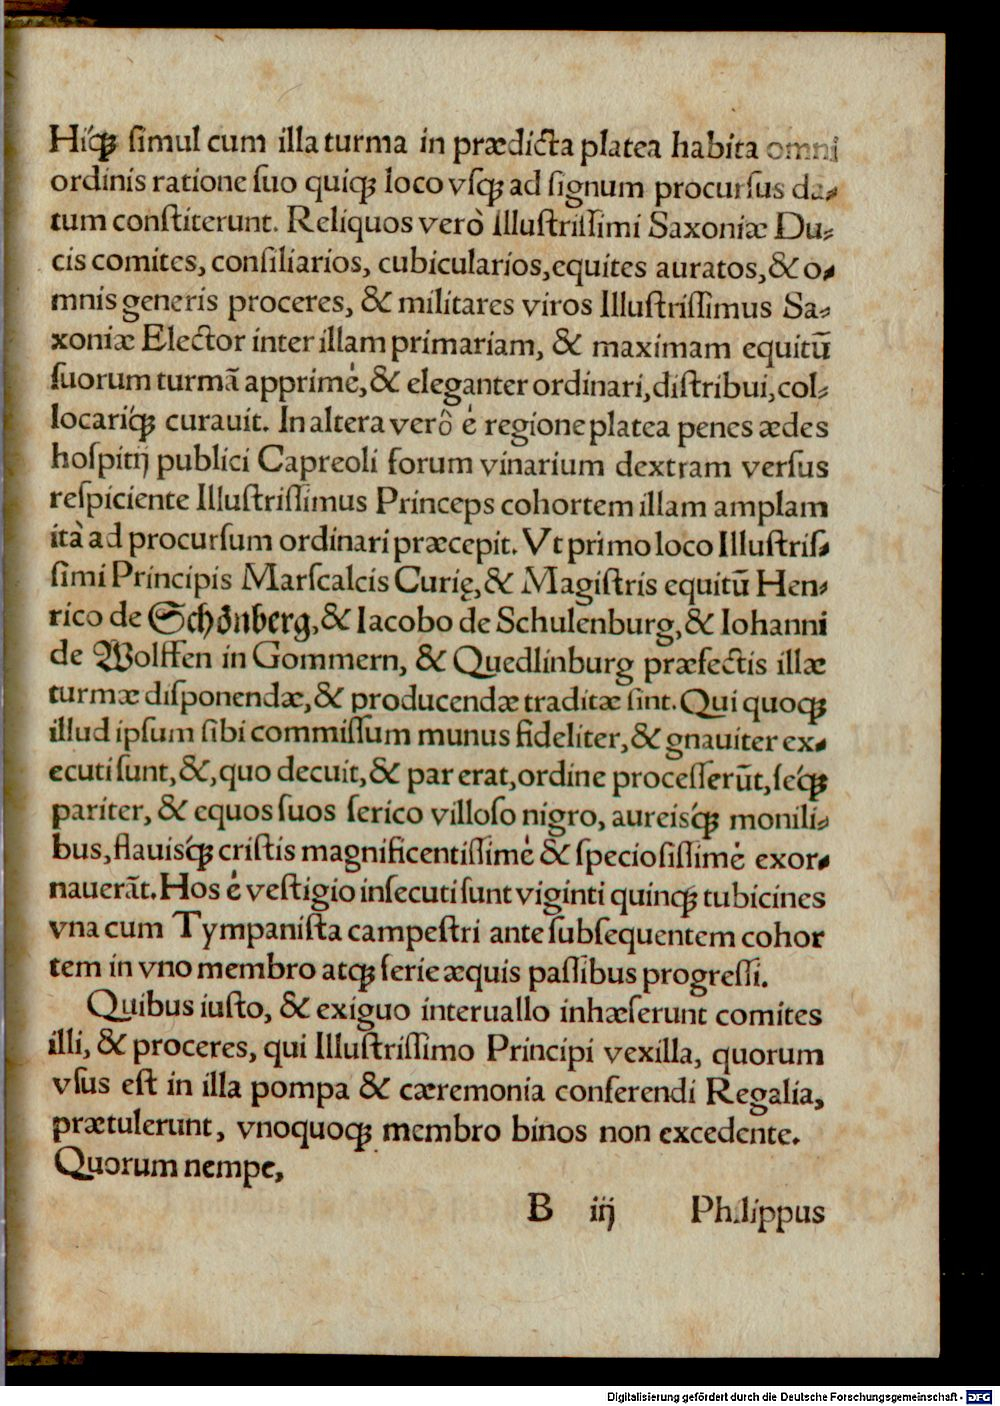 Hiq́ꝫ ſimul cum illa turma in prædicta platea habita omni
ordinis ratione ſuo quiqꝫ loco vſqꝫ ad ſignum procurſus da⸗
tum conſtiterunt. Reliquos verò illuſtriſſimi Saxoniæ Du⸗
cis comites, conſiliarios, cubicularios, equites auratos, & o⸗
mnis generis proceres, & militares viros Illuſtriſſimus Sa⸗
xoniæ Elector inter illam primariam, & maximam equitũ
ſuorum turmã apprimè, & eleganter ordinari, diſtribui, col⸗
locariq́ꝫ curauit. In altera verò è regione platea penes ædes
hoſpitij publici Capreoli forum vinarium dextram verſus
reſpiciente Illuſtriſſimus Princeps cohortem illam amplam
ità ad procurſum ordinari præcepit. Vt primo loco Illuſtriſ⸗
ſimi Principis Marſcalcis Curię, & Magiſtris equitũ Hen⸗
rico de Schönberg, & Iacobo de Schulenburg, & Iohanni
de Wolffen in Gommern, & Quedlinburg præfectis illæ
turmæ diſponendæ, & producendæ traditæ ſint. Qui quoqꝫ
illud ipſum ſibi commiſſum munus fideliter, & gnauiter ex⸗
ecuti ſunt, &, quo decuit, & par erat, ordine proceſſerũt, ſeq́ꝫ
pariter, & equos ſuos ſerico villoſo nigro, aureisq́ꝫ monili⸗
bus, flauisq́ꝫ criſtis magnificentiſſimè & ſpecioſiſſimè exor⸗
nauerãt. Hos è veſtigio inſecuti ſunt viginti quinqꝫ tubicines
vna cum Tympaniſta campeſtri ante ſubſequentem cohor
tem in vno membro atqꝫ ſerie æquis paſſibus progreſſi.
Quibus iuſto, & exiguo interuallo inhæſerunt comites
illi, & proceres, qui Illuſtriſſimo Principi vexilla, quorum
vſus eſt in illa pompa & cæremonia conferendi Regalia,
prætulerunt, vnoquoqꝫ membro binos non excedente.
Quorum nempe,
B iij Philippus
Digitalisierung gefördert durch die Deutsche Forschungsgemeinschaft - DFG